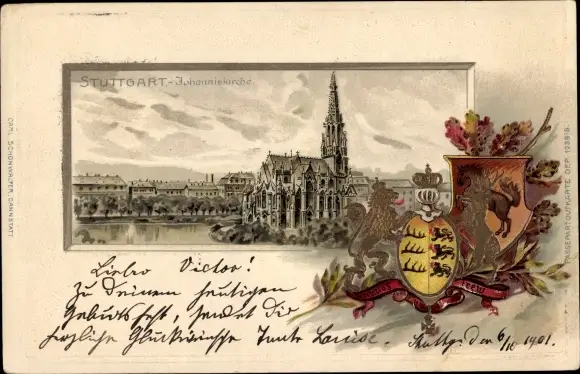 STUTTGART.–Johanniskirche.
CARL SCHONWALTER, CANNSTATT.
PASSEPARTOUTKARTE DEP.
FURCHTLOS TREW
Lieber Victor!
Zu deinem heutigen
Geburtsfest, sendet Dir
herzliche Glückwünsche Tante Louise.
Stuttg. den 6/10 1901.